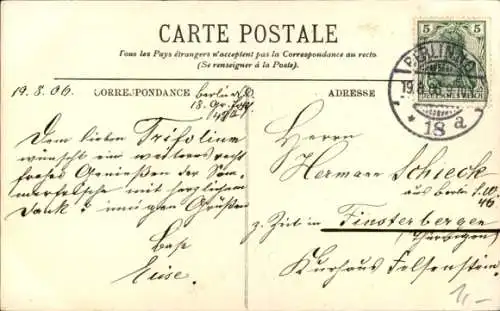 CARTE POSTALE
Tous les Pays étrangers n'acceptent pas la Correspondance au recto.
(Se renseigner à la Poste).
5 5
BERLIN
19.8.06
* 18 a
19.8.06
CORRESPONDANCE
ADRESSE
Dem lieben Trifolium
wünscht ein weiteres recht
frohes Genießen der Som-
mit herzlichem
Dank & innigen Grüßen
Base
Herrn
Hermann Schieck
aus Berlin S.W.
46
z. Zeit in Finsterbergen
(Thüringen)
Kurhaus Felsenstein.
1,-